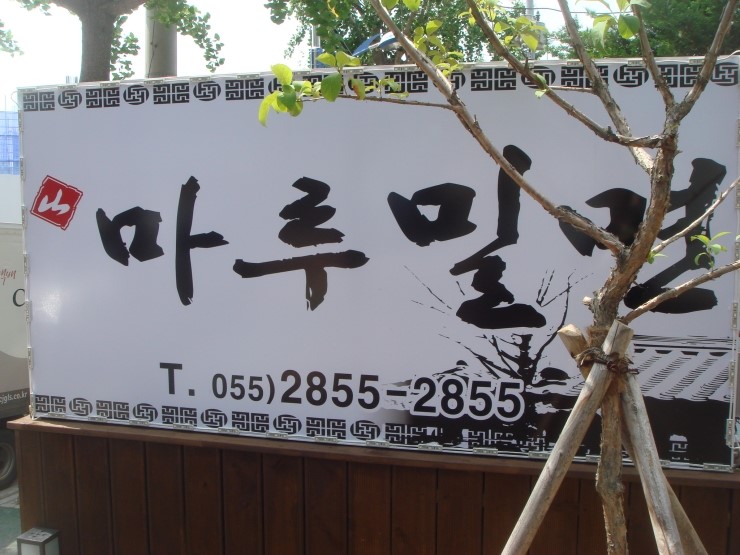 山
마루밀면
T. 055)2855-2855